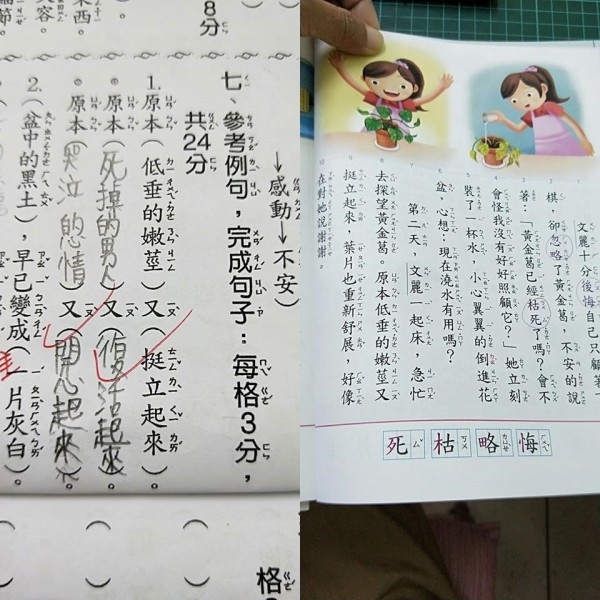 東西。
8分
(→感動→不安)
七、參考例句，完成句子：每格3分，
共24分
1.原本(低垂的嫩莖)又(挺立起來)。
。原本(死掉的男人)又(復活起來)。
。原本(哭泣的心情)又(開心起來)。
2.(盆中的黑土)，早已變成(一片灰白)。
格
文麗十分後悔自己只顧著
棋，卻忽略了黃金葛，不安的說
著：「黃金葛已經枯死了嗎？會不
會怪我沒有好好照顧它？」她立刻
裝了一杯水，小心翼翼的倒進花
盆，心想：現在澆水有用嗎？
第二天，文麗一起床，急忙
去探望黃金葛。原本低垂的嫩莖又
挺立起來，葉片也重新舒展，好像
在對她說謝謝。
悔
略
枯
死